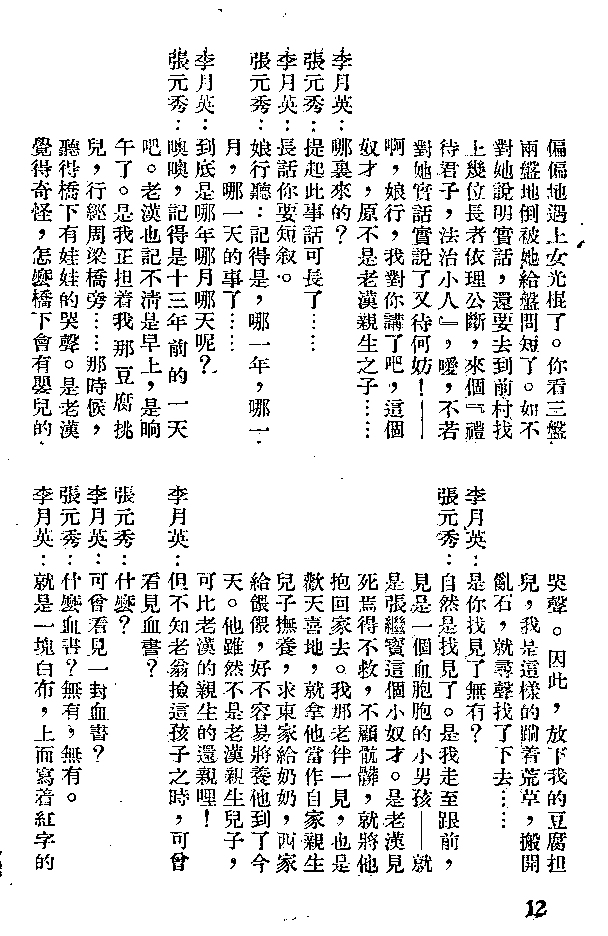 偏偏地遇上女光棍了。你看三盤
兩盤地倒被她給盤問短了。如不
對她說明實話，還要去到前村找
上幾位長者依理公斷，來個『禮
待君子，法治小人』，噯，不若
對她實話實說了又待何妨！——
啊，娘行，我對你講了吧，這個
奴才，原不是老漢親生之子……
李月英：哪裏來的？
張元秀：提起此事話可長了……
李月英：長話你要短叙。
張元秀：娘行聽：記得是，哪一年，哪一
月，哪一天的事了……
李月英：到底是哪年哪月哪天呢？
張元秀：噢噢，記得是十三年前的一天
吧。老漢也記不清是早上，是晌
午了。是我正担着我那豆腐挑
兒，行經周梁橋旁……那時候，
聽得橋下有娃娃的哭聲。是老漢
覺得奇怪，怎麼橋下會有嬰兒的
哭聲。因此，放下我的豆腐担
兒，我是這樣的蹦着荒草，搬開
亂石，就尋聲找了下去……
李月英：是你找見了無有？
張元秀：自然是找見了。是我走至跟前，
見是一個血胞胞的小男孩——就
是張繼寶這個小奴才。是老漢見
死焉得不救，不顧骯髒，就將他
抱回家去。我那老伴一見，也是
歡天喜地，就拿他當作自家親生
兒子撫養，求東家給奶奶，西家
給餵餵，好不容易將養他到了今
天。他雖然不是老漢親生兒子，
可比老漢的親生的還親哩！
李月英：但不知老翁撿這孩子之時，可曾
看見血書？
張元秀：什麼？
李月英：可曾看見一封血書？
張元秀：什麼血書？無有，無有。
李月英：就是一塊白布，上面寫着紅字的
12